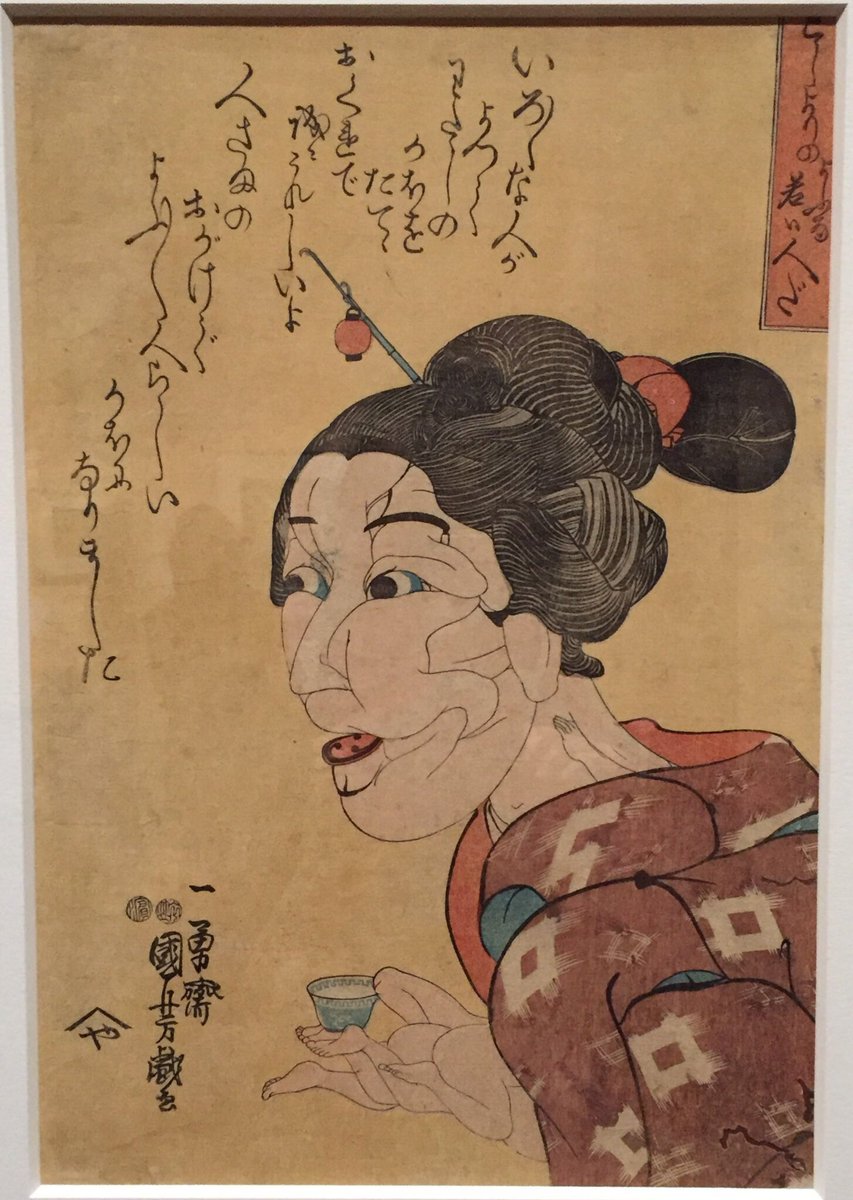 としよりのよふな若い人だ
いろ〳〵な人が
よつて
わたしの
かほを
たてゝ
おくれで
誠にうれしいよ
人さまの
おかげで
よふ〳〵人らしい
かほに
なりました
一勇齋
國芳戯画
や